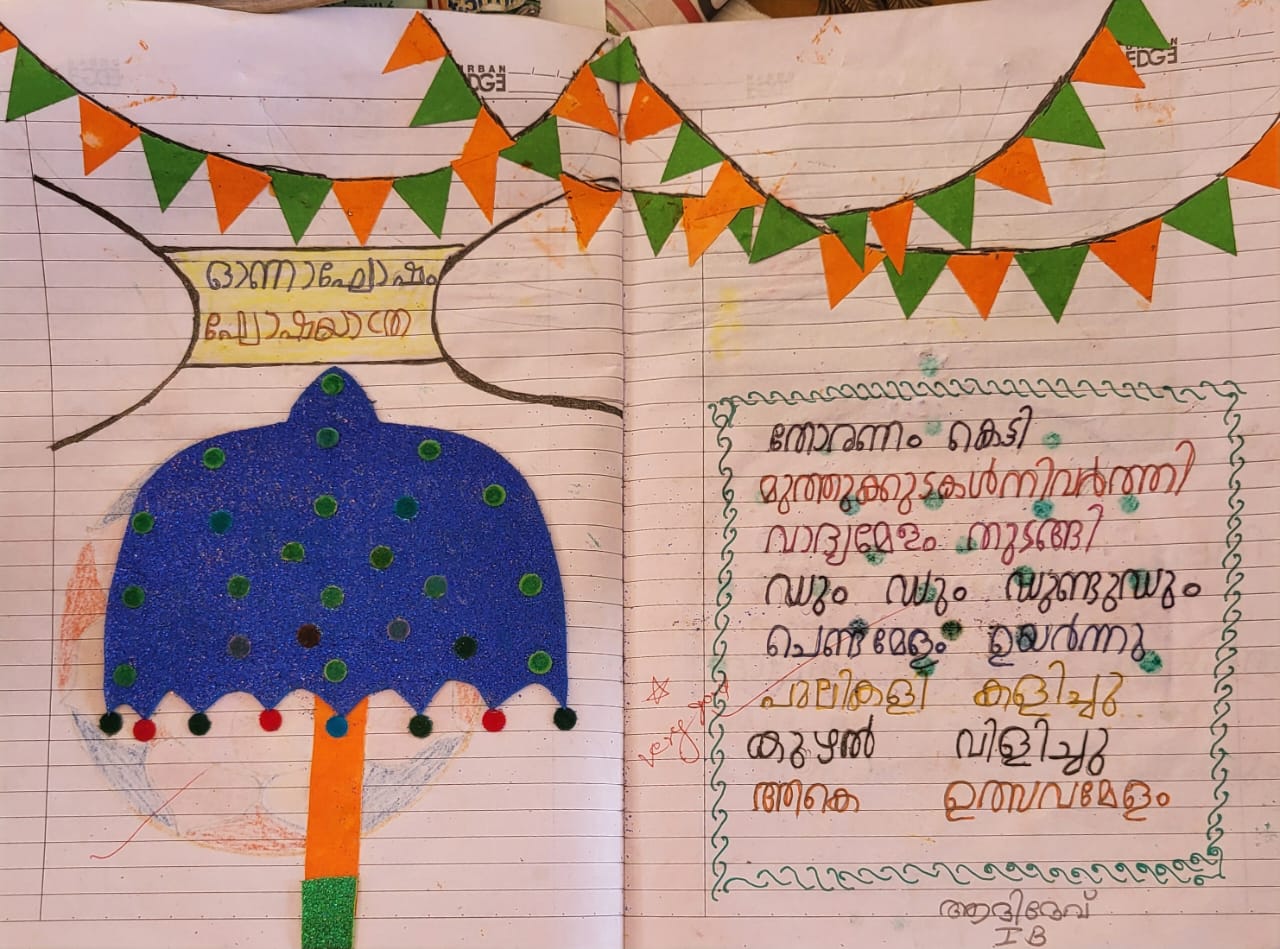 URBAN
EDGE
URBAN
EDGE
ഓണാഘോഷം
ഘോഷയാത്ര
തോരണം കെട്ടി
മുത്തുക്കുടകൾനിവർത്തി
വാദ്യമേളം തുടങ്ങി
ഡും ഡും ഡുണ്ടുഡും
ചെണ്ടമേളം ഉയർന്നു
പുലികളി കളിച്ചു
കുഴൽ വിളിച്ചു
ആകെ ഉത്സവമേളം
very
ആദിദേവ്
I B